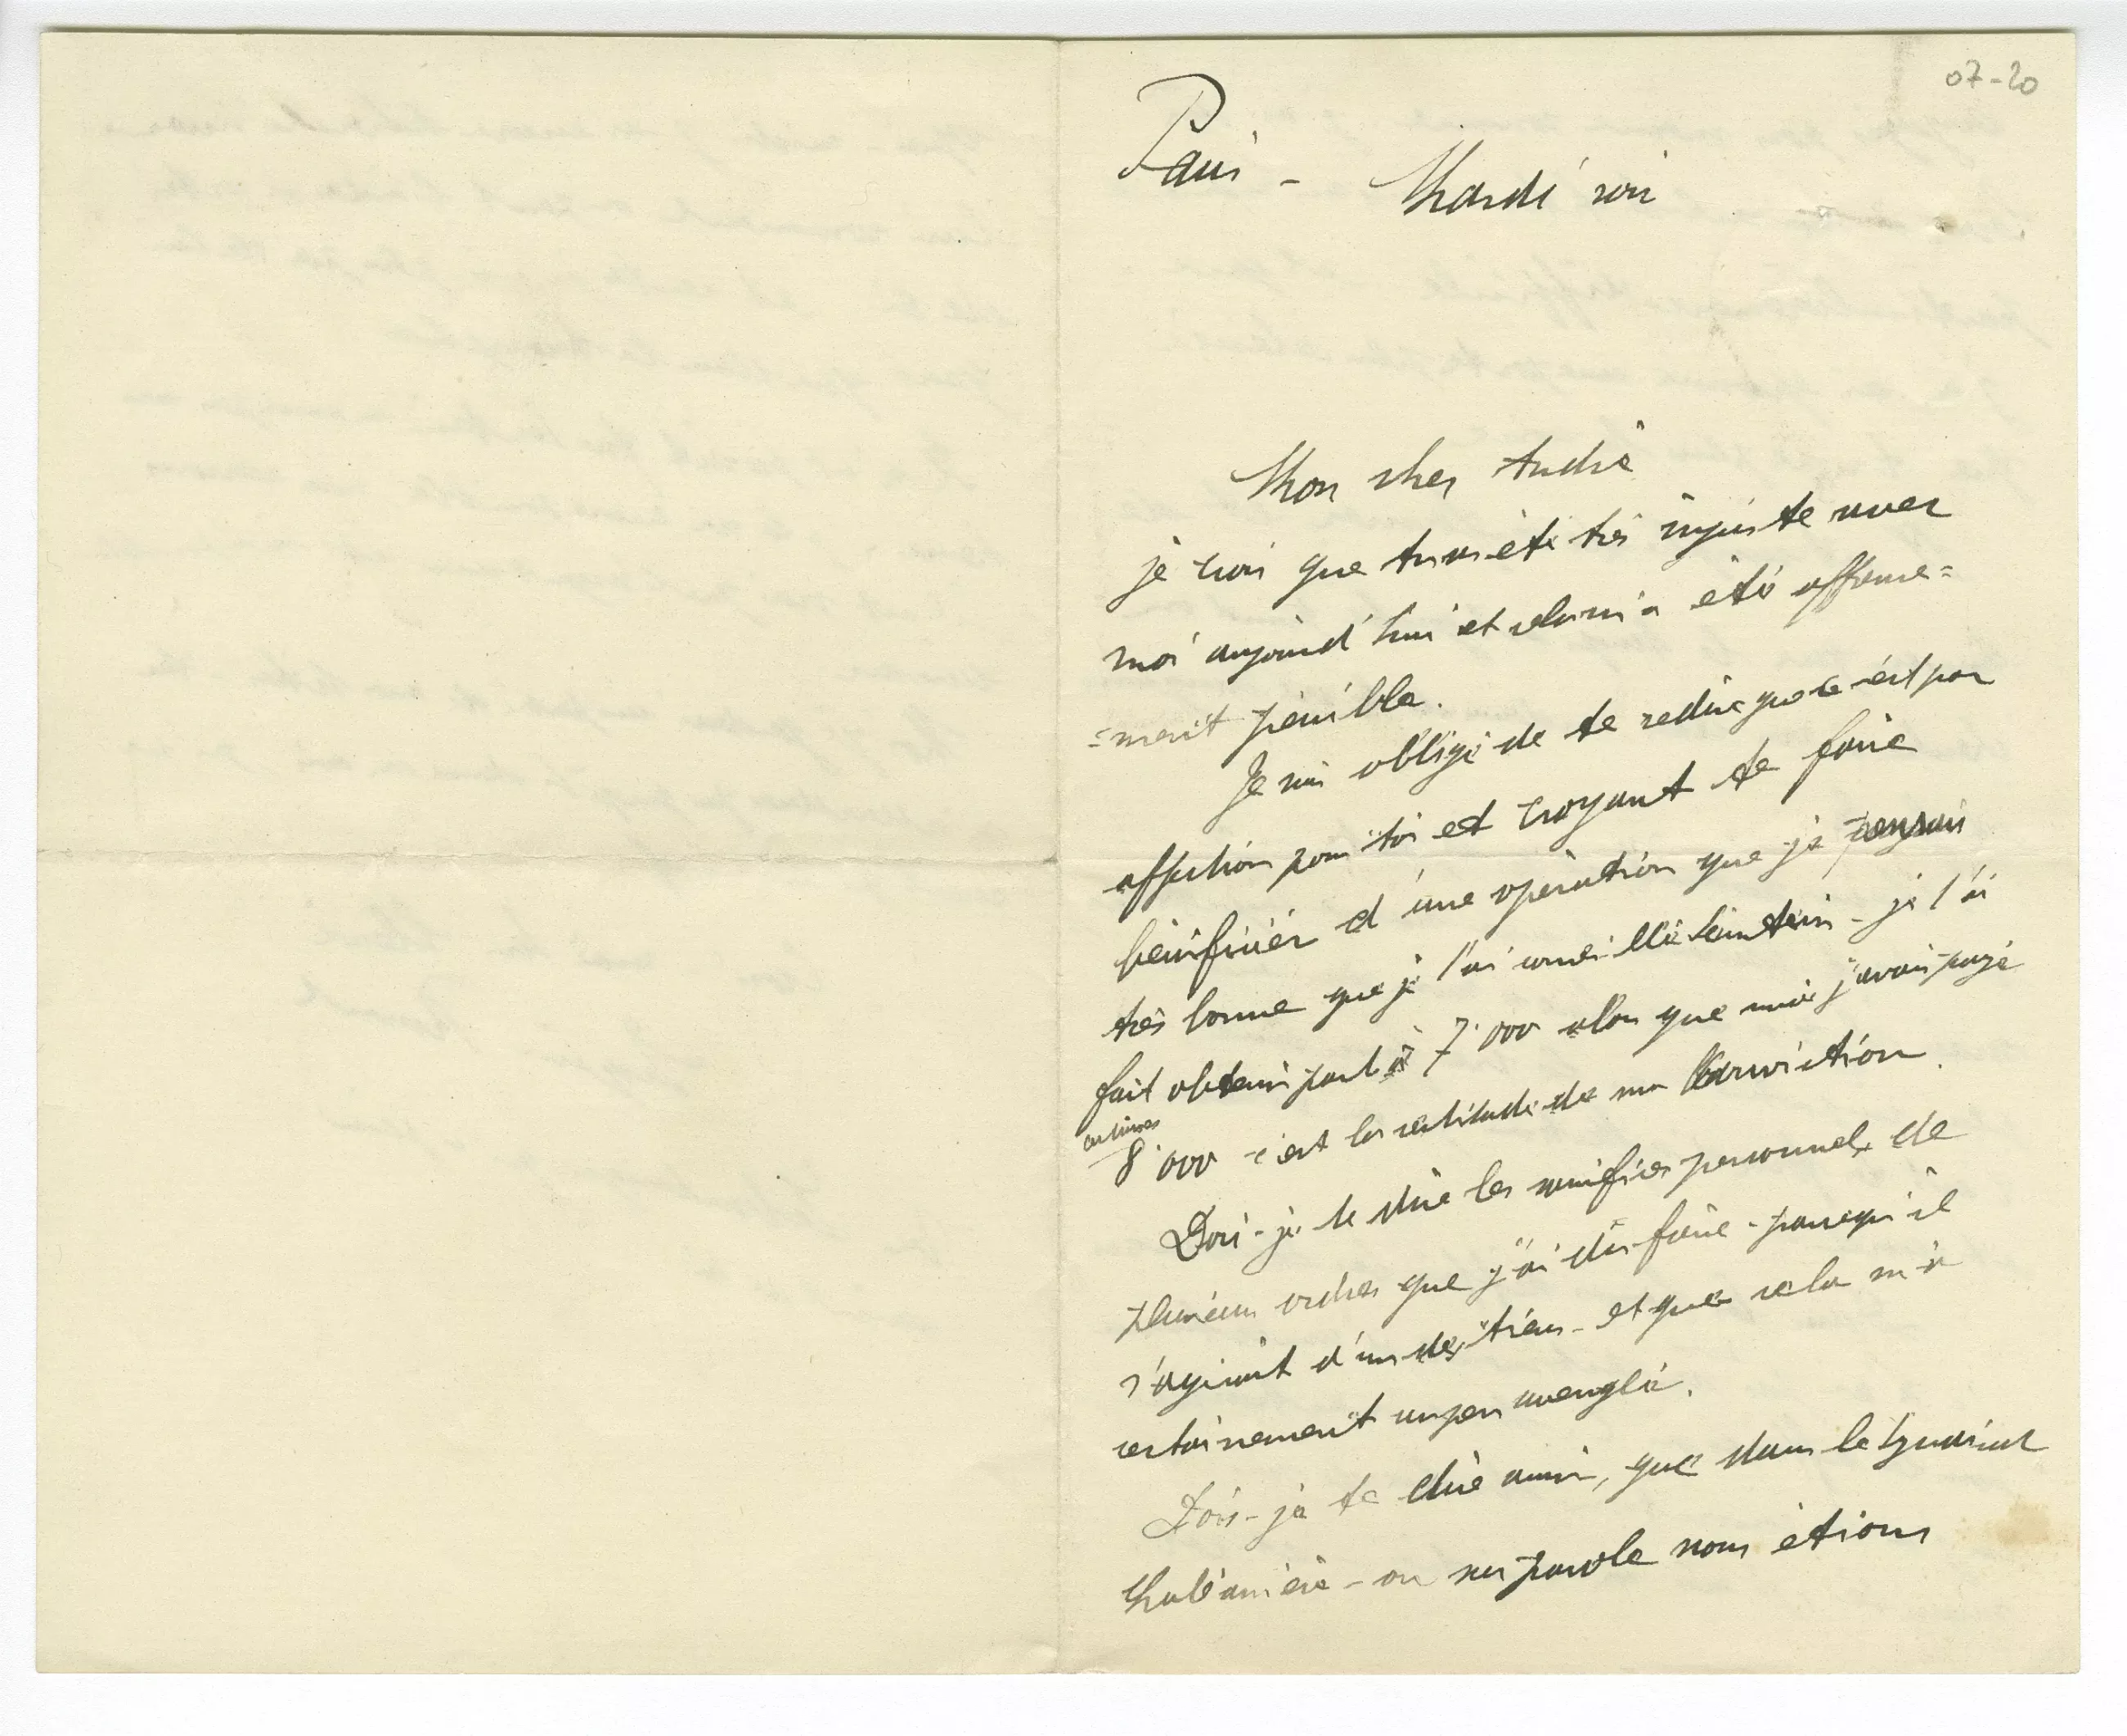 07-20
Paris - Mardi soir
Mon cher André
je crois que tu as été très injuste avec
moi aujourd'hui et cela m'a été affreuse=
=ment pénible.
Je suis obligé de te redire que c'est par
affection pour toi et croyant te faire
bénéficier d'une opération que je pensais
très bonne que je l'ai conseillé - je l'ai
fait obtenir à 7'000 alors que moi j'avais payé
8'000 c'est la certitude de ma conviction.
Dois-je te dire les sacrifices personnels de
plusieurs ordres que j'ai dû faire - parcequ'il
s'agissait d'un des tiens - et que cela m'a
certainement un peu aveuglé.
Dois-je te dire aussi, que dans le
- ou sur parole nous étions